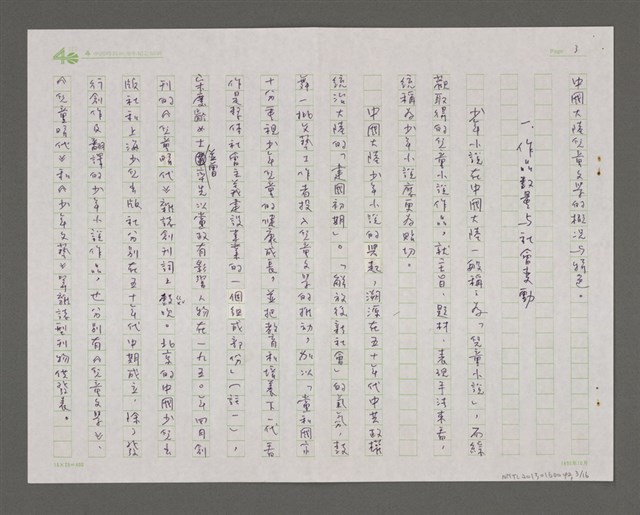 Page: 3
中國大陸兒童文學的概況与特色。
一、作品數量与社會变動
少年小說在中國大陸一般稱之為「兒童小說」，不綜
觀取得的兒童小說作品，就主旨、題材、表現手法來看，
統稱為少年小說應更為貼切。
中國大陸少年小說的興起，溯源在五十年代中共政權
統治大陸的「建國初期」。「解放後新社會」的氣氛，鼓
舞一批文藝工作者投入兒童文學的推動，加以「黨和國家
十分重視少年兒童的健康成長，並把教育和培養下一代
作是整体社會主義建設事業的一個組成部份」（註一），
宋慶齡 先以黨政有影響人物在一九五〇年四月創
刊的《兒童時代》雜誌創刊詞上 吹。北京的中國少兒出
版社和上海少兒出版社分別在五十年代中期成立，除了發
行創作及翻譯的少年小說作品，也分別有《兒童文學》、
《兒童時代》和《少年文藝》等雜誌型刊物供發表。
3/16